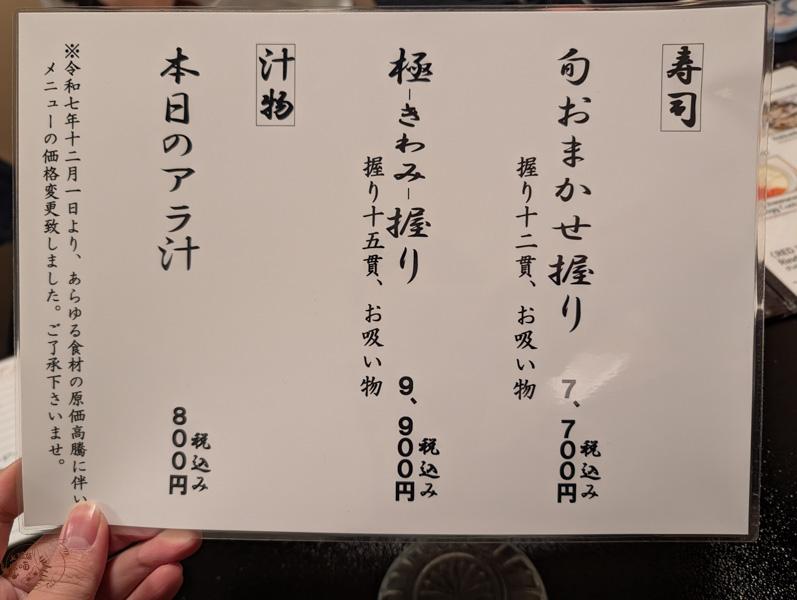 寿司
旬おまかせ握り
握り十二貫、お吸い物
7、700円
税込み
極-きわみ-握り
握り十五貫、お吸い物
9、900円
税込み
汁物
本日のアラ汁
800円
税込み
※令和七年十二月一日より、あらゆる食材の原価高騰に伴い
メニューの価格変更致しました。ご了承下さいませ。